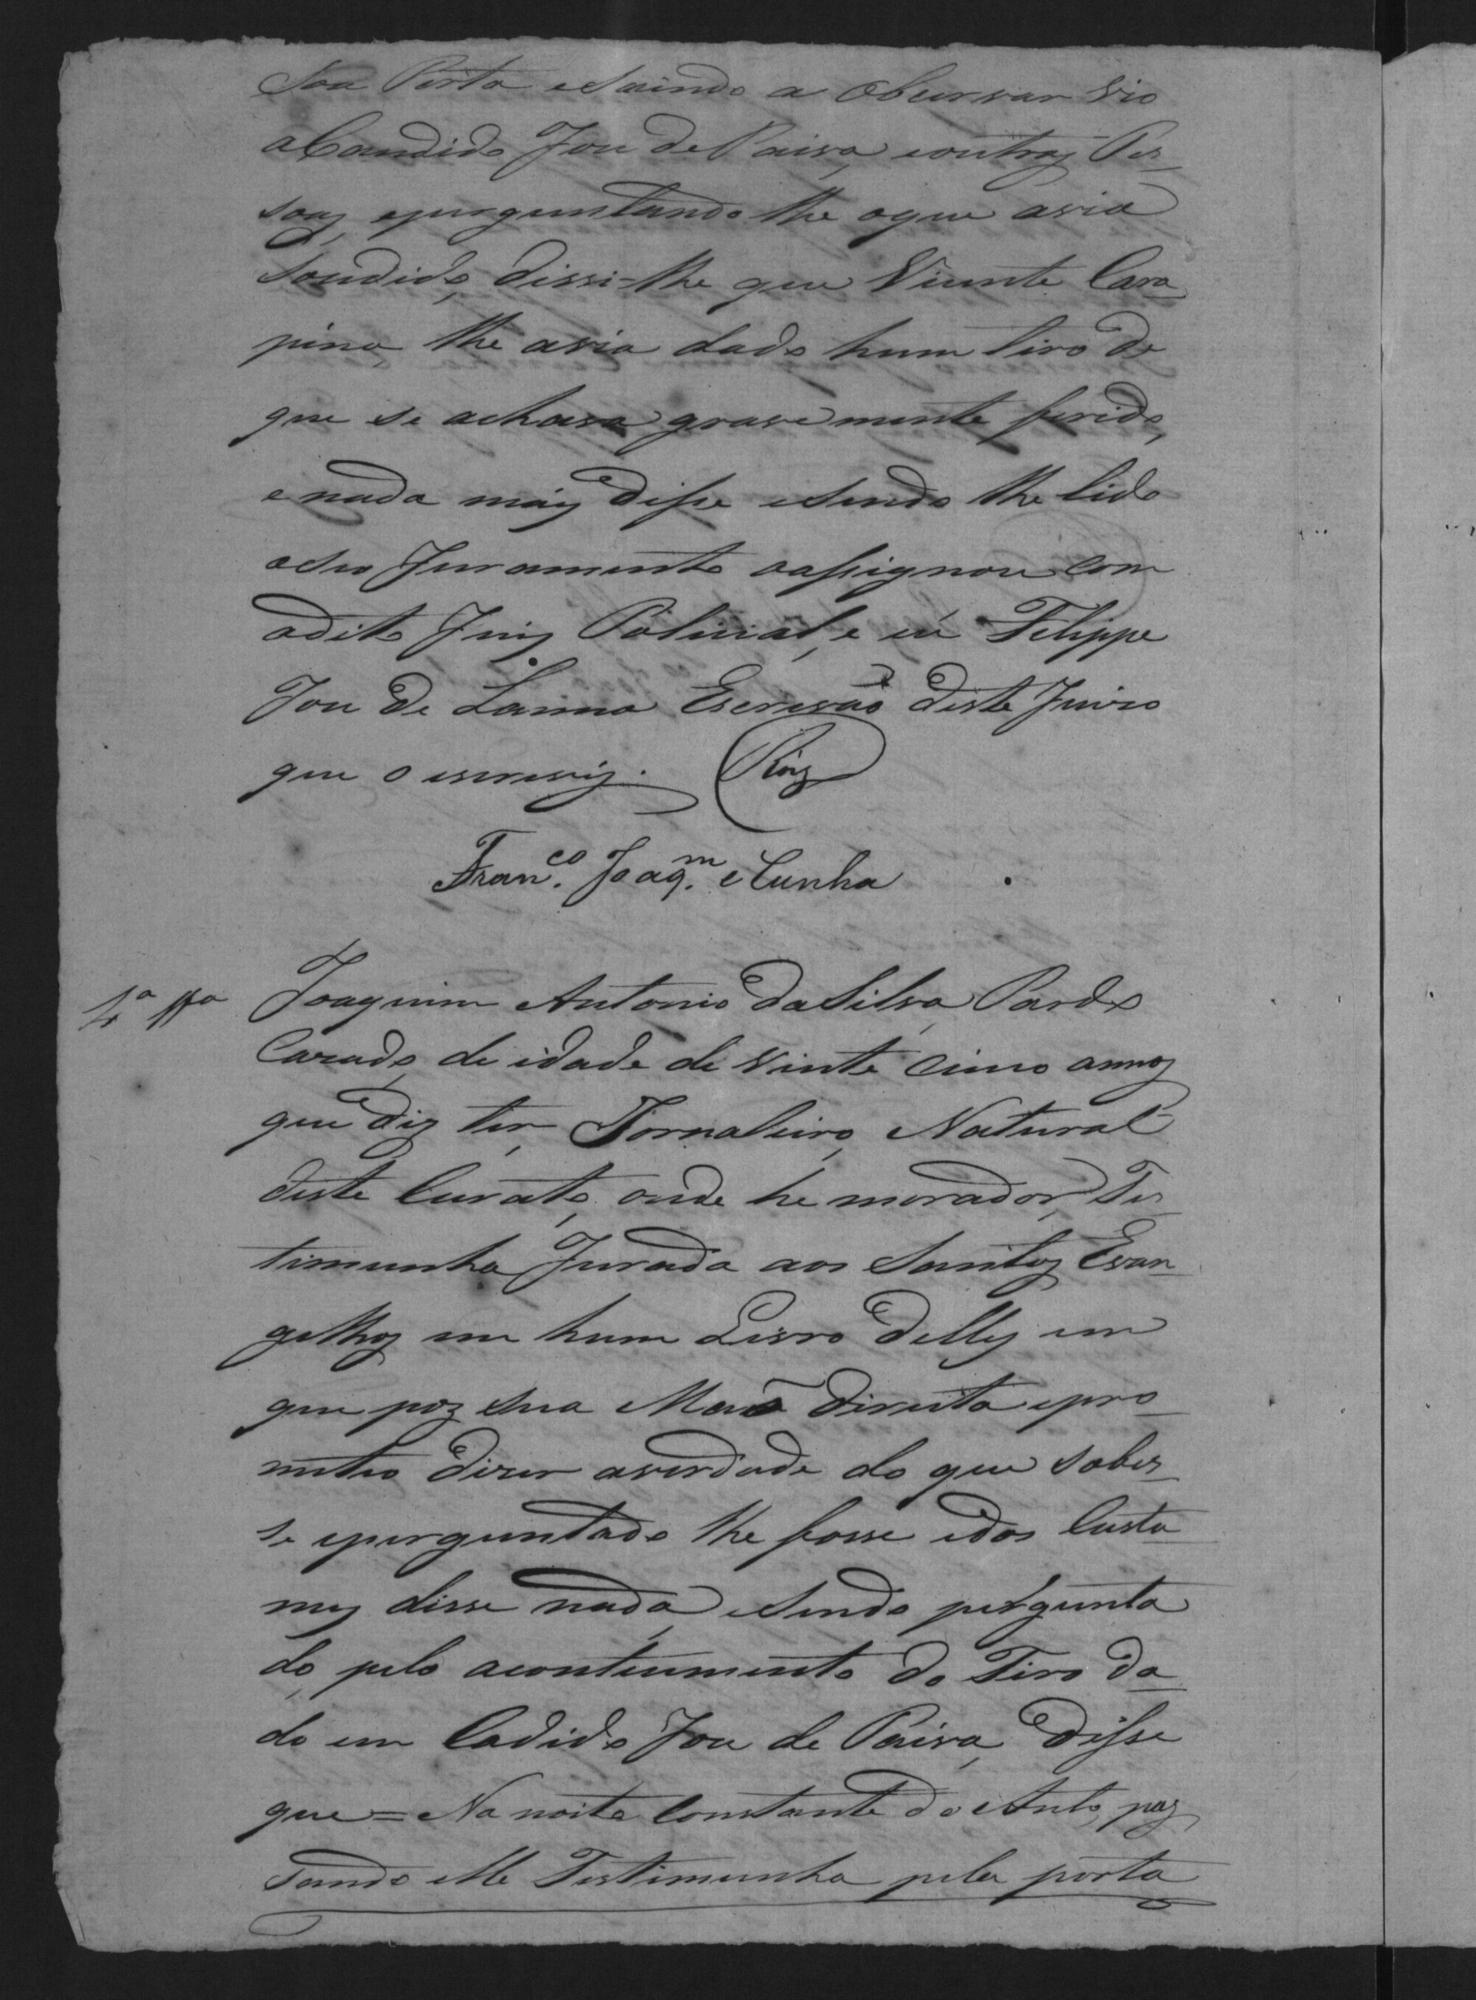 Sua Porta esaindo a Obcervar vio
aCandido Joze de Paiva, eoutras Pes-
soas, eperguntando lhe oque avia
soudido, dissi-lhe que Vicente Cara-
pina, lhe avia dado hum tiro de
que se achava grave mente ferido,
e nada mais disse esendo lhe lido
oseu Juramento oassignou com
odito Juiz Policial, e eu Filippe
Joze de Lanna Escrivaõ deste Juizo
que o escrevy. Roiz
Fran.co Joaq.m e Cunha
4a tta
Joaquim Antonio da Silva, Pardo
Cazado, de idade de vinte cinco annos
que diz ter, Jornaleiro, Natural
deste Curato, onde he morador, Tes-
timunha Jurada aos Santos Evan-
gelhos em hum Livro delles em
que poz sua Maõ direita epro-
meteo dizer averdade do que sobes-
se eperguntado lhe fosse edos Custu-
mes disse nada, esendo pergunta
do, pelo acontecimento do Tiro da-
do em Cadido Joze de Paiva, disse
que = Na noite Constante do Auto, pas-
sando elle Testimunha pela porta